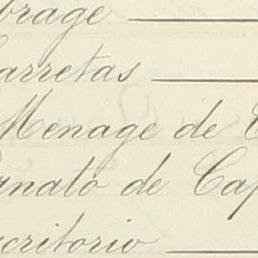 brage
Carretas
Menage de C
rnato de Cap
critorio